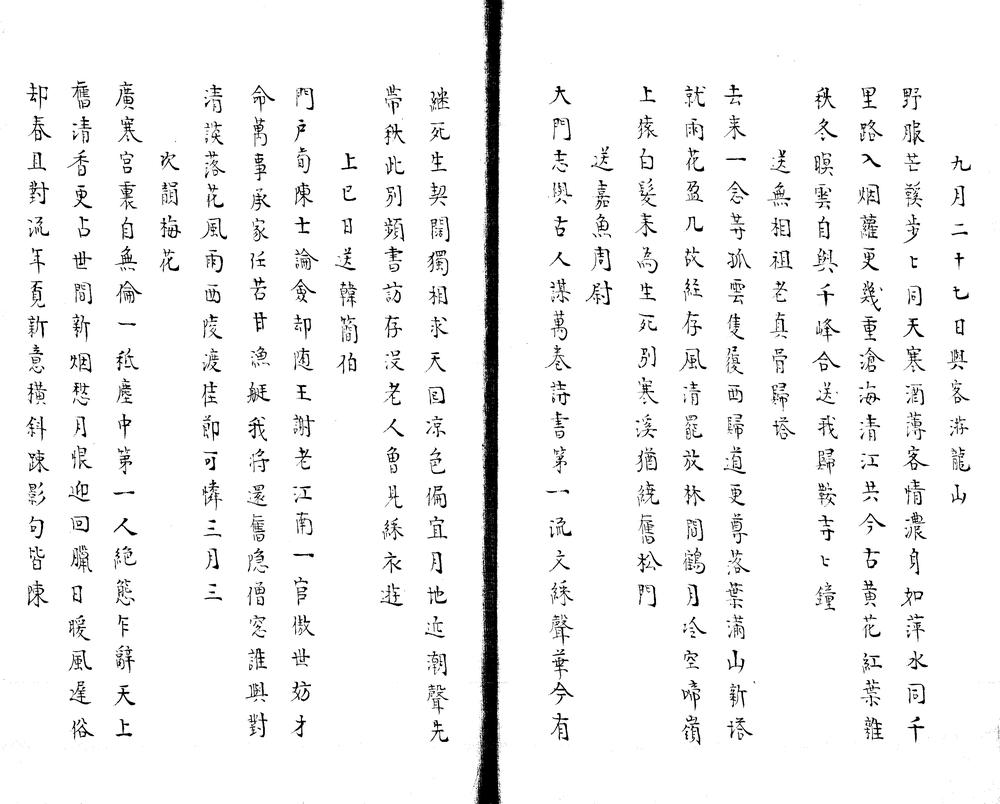 九月二十七日與客游龍山
野服芒鞵步〻同天寒酒薄客情濃身如萍水同千
里路入烟蘿更幾重滄海清江共今古黄花紅葉雜
秋冬暝雲自與千峰合送我歸鞍寺〻鐘
送無相祖老真骨歸塔
去来一念等孤雲隻履西歸道更尊落葉滿山新塔
就雨花盈几故經存風清罷放林間鶴月冷空啼嶺
上猿白髮来為生死別寒溪猶繞舊松門
送嘉魚周尉
大門志與古人謀萬卷詩書第一流文綵聲華今有
継死生契闊獨相求天回凉色偏宜月地近潮聲先
帶秋此別頻書訪存没老人魯見綵衣遊
上巳日送韓簡伯
門戶荀陳士論僉却随王謝老江南一官傲世妨才
命萬事承家任苦甘漁艇我将還舊隐僧窓誰與對
清談落花風雨西陵渡佳節可憐三月三
次韻梅花
廣寒宫裏自無倫一秪塵中第一人絶態乍辭天上
舊清香更占世間新烟愁月恨迎回臘日暖風遲俗
却春且對流年覓新意橫斜踈影句皆陳